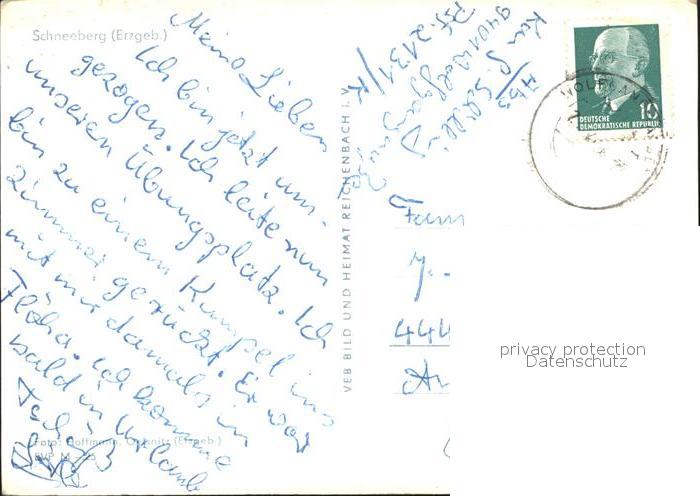 Schneeberg (Erzgeb.)
Meine Lieben
Ich bin jetzt um-
gezogen. Ich leite nun
unseren Übungsplatz. Ich
bin zu einem Kumpel ins
Zimmer gerückt. Er war
mit mir damals in
Flöha. Ich komme
bald in Urlaub
Foto: Hoffmann, Oelsnitz (Erzgeb.)
VEB BILD UND HEIMAT REICHENBACH I. V.
Abs
9401 Wolfgangmaß
Pf. 2131/K
DEUTSCHE
DEMOKRATISCHE REPUBLIK
10
Fam
J.
444
privacy protection
Datenschutz